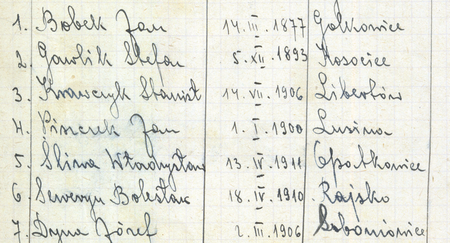 1. Bobek Jan 14. III. 1877 Golkowice
2. Gawlik Stefan 5. XII. 1893 Kosocice
3. Krawczyk Stanisł 14. VII. 1906 Libertów
4. Piszczek Jan 1. I. 1900 Lusina
5. Śliwa Władysław 13. IV. 1911 Opatkowice
6. Seweryn Bolesław 18. IV. 1910 Rajsko
7. Dyna Józef 2. III. 1906